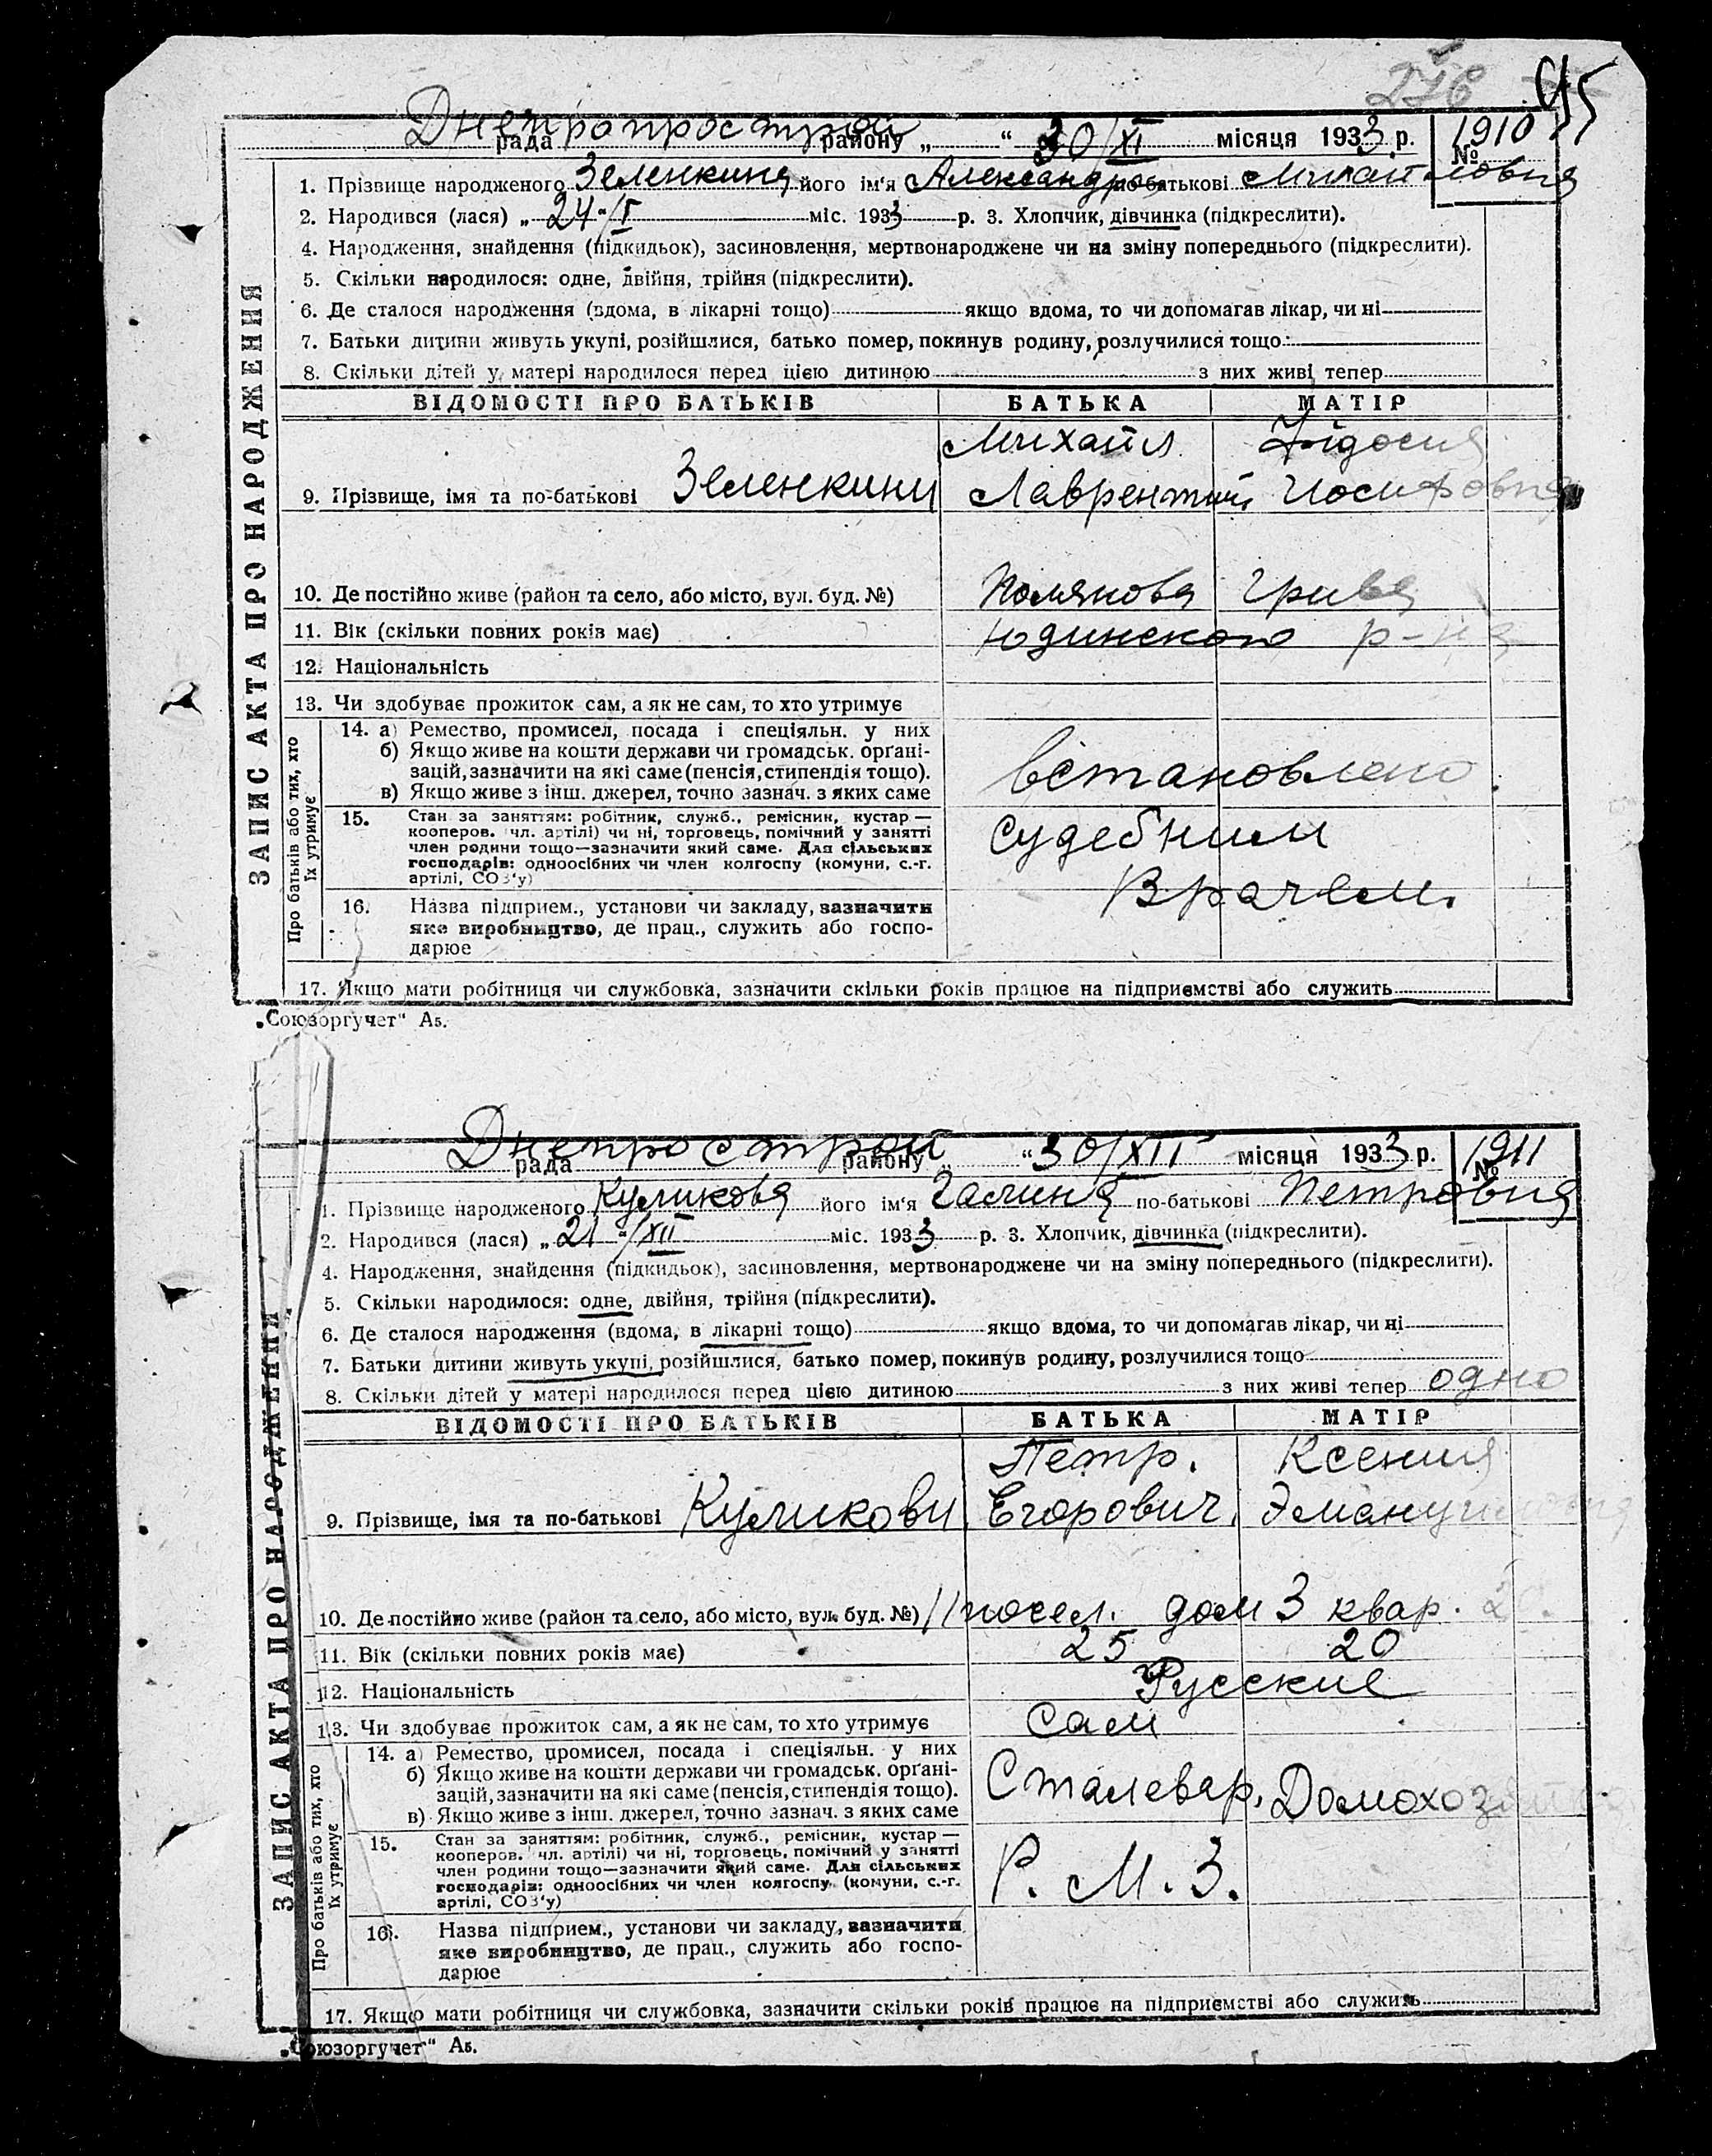 276 95
Днепропрострой
рада району „ “ 30/XI місяця 1933 р. № 1910
1. Прізвище народженого Зеленкина його ім'я Александра по-батькові Михайловна
2. Народився (лася) „ 24-/I міс. 1933 р. 3. Хлопчик, дівчинка (підкреслити).
4. Народження, знайдення (підкидьок), засиновлення, мертвонароджене чи на зміну попереднього (підкреслити).
5. Скільки народилося: одне, двійня, трійня (підкреслити).
6. Де сталося народження (вдома, в лікарні тощо) якщо вдома, то чи допомагав лікар, чи ні
7. Батьки дитини живуть укупі, розійшлися, батько помер, покинув родину, розлучилися тощо
8. Скільки дітей у матері народилося перед цією дитиною з них живі тепер
ЗАПИС АКТА ПРО НАРОДЖЕННЯ
ВІДОМОСТІ ПРО БАТЬКІВ БАТЬКА МАТІР
Михайл
9. Прізвище, імя та по-батькові Зеленкини Иосифовна
10. Де постійно живе (район та село, або місто, вул. буд. №) Полянова Грива
11. Вік (скільки повних років має) Юдинского р-на
12. Національність
13. Чи здобуває прожиток сам, а як не сам, то хто утримує
Про батьків або тих, хто їх утримує
14. а) Ремество, промисел, посада і спеціяльн. у них
б) Якщо живе на кошти держави чи громадськ. орґані-
зацій, зазначити на які саме (пенсія, стипендія тощо).
в) Якщо живе з інш. джерел, точно зазнач. з яких саме
встановлено
15. Стан за заняттям: робітник, служб., ремісник, кустар —
кооперов. чл. артілі) чи ні, торговець, помічний у занятті
член родини тощо—зазначити який саме. Для сільських
господарів: одноосібних чи член колгоспу (комуни, с.-г.
артілі, СОЗ'у)
судебним
Врачем.
16. Назва підприєм., установи чи закладу, зазначити
яке виробництво, де прац., служить або госпо-
дарює
17. Якщо мати робітниця чи службовка, зазначити скільки років працює на підприємстві або служить
„Союзоргучет“ Аз.
Днепрострой
рада району „ “ 30/XII місяця 1933 р. № 1911
1. Прізвище народженого Куликова його ім'я Галина по-батькові Петровна
2. Народився (лася) „ 21-/XII міс. 1933 р. 3. Хлопчик, дівчинка (підкреслити).
4. Народження, знайдення (підкидьок), засиновлення, мертвонароджене чи на зміну попереднього (підкреслити).
5. Скільки народилося: одне, двійня, трійня (підкреслити).
6. Де сталося народження (вдома, в лікарні тощо) якщо вдома, то чи допомагав лікар, чи ні
7. Батьки дитини живуть укупі, розійшлися, батько помер, покинув родину, розлучилися тощо
8. Скільки дітей у матері народилося перед цією дитиною з них живі тепер одно
ЗАПИС АКТА ПРО НАРОДЖЕННЯ
ВІДОМОСТІ ПРО БАТЬКІВ БАТЬКА МАТІР
Петр. Ксения
9. Прізвище, імя та по-батькові Куликови Егорович,
10. Де постійно живе (район та село, або місто, вул. буд. №) 11 посел. дом 3 квар. 20.
11. Вік (скільки повних років має) 25 20
12. Національність Русские
13. Чи здобуває прожиток сам, а як не сам, то хто утримує сам
Про батьків або тих, хто їх утримує
14. а) Ремество, промисел, посада і спеціяльн. у них
б) Якщо живе на кошти держави чи громадськ. орґані-
зацій, зазначити на які саме (пенсія, стипендія тощо).
в) Якщо живе з інш. джерел, точно зазнач. з яких саме
Сталевар, Домохозяйка
15. Стан за заняттям: робітник, служб., ремісник, кустар —
кооперов. чл. артілі) чи ні, торговець, помічний у занятті
член родини тощо—зазначити який саме. Для сільських
господарів: одноосібних чи член колгоспу (комуни, с.-г.
артілі, СОЗ'у)
Р. М. З.
16. Назва підприєм., установи чи закладу, зазначити
яке виробництво, де прац., служить або госпо-
дарює
17. Якщо мати робітниця чи службовка, зазначити скільки років працює на підприємстві або служить
„Союзоргучет“ Аз.